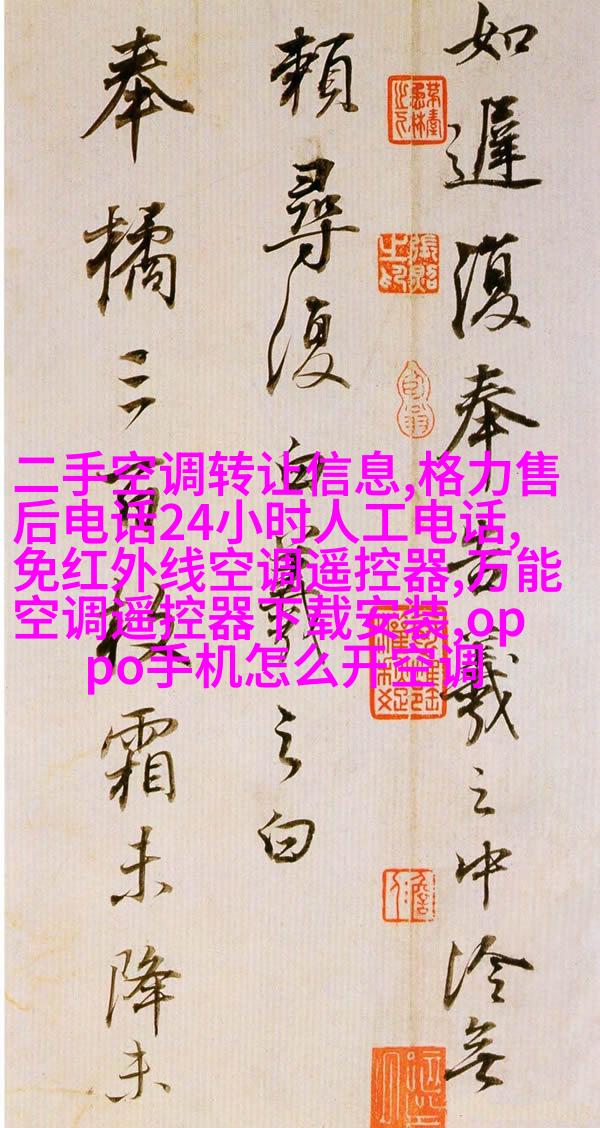 二手空调转让信息,格力售
后电话24小时人工电话,
免红外线空调遥控器,万能
空调遥控器下载安装,op
po手机怎么开空调
如遲復奉告羲之中冷無
賴尋復白羲之白
奉橘三百枚霜未降未